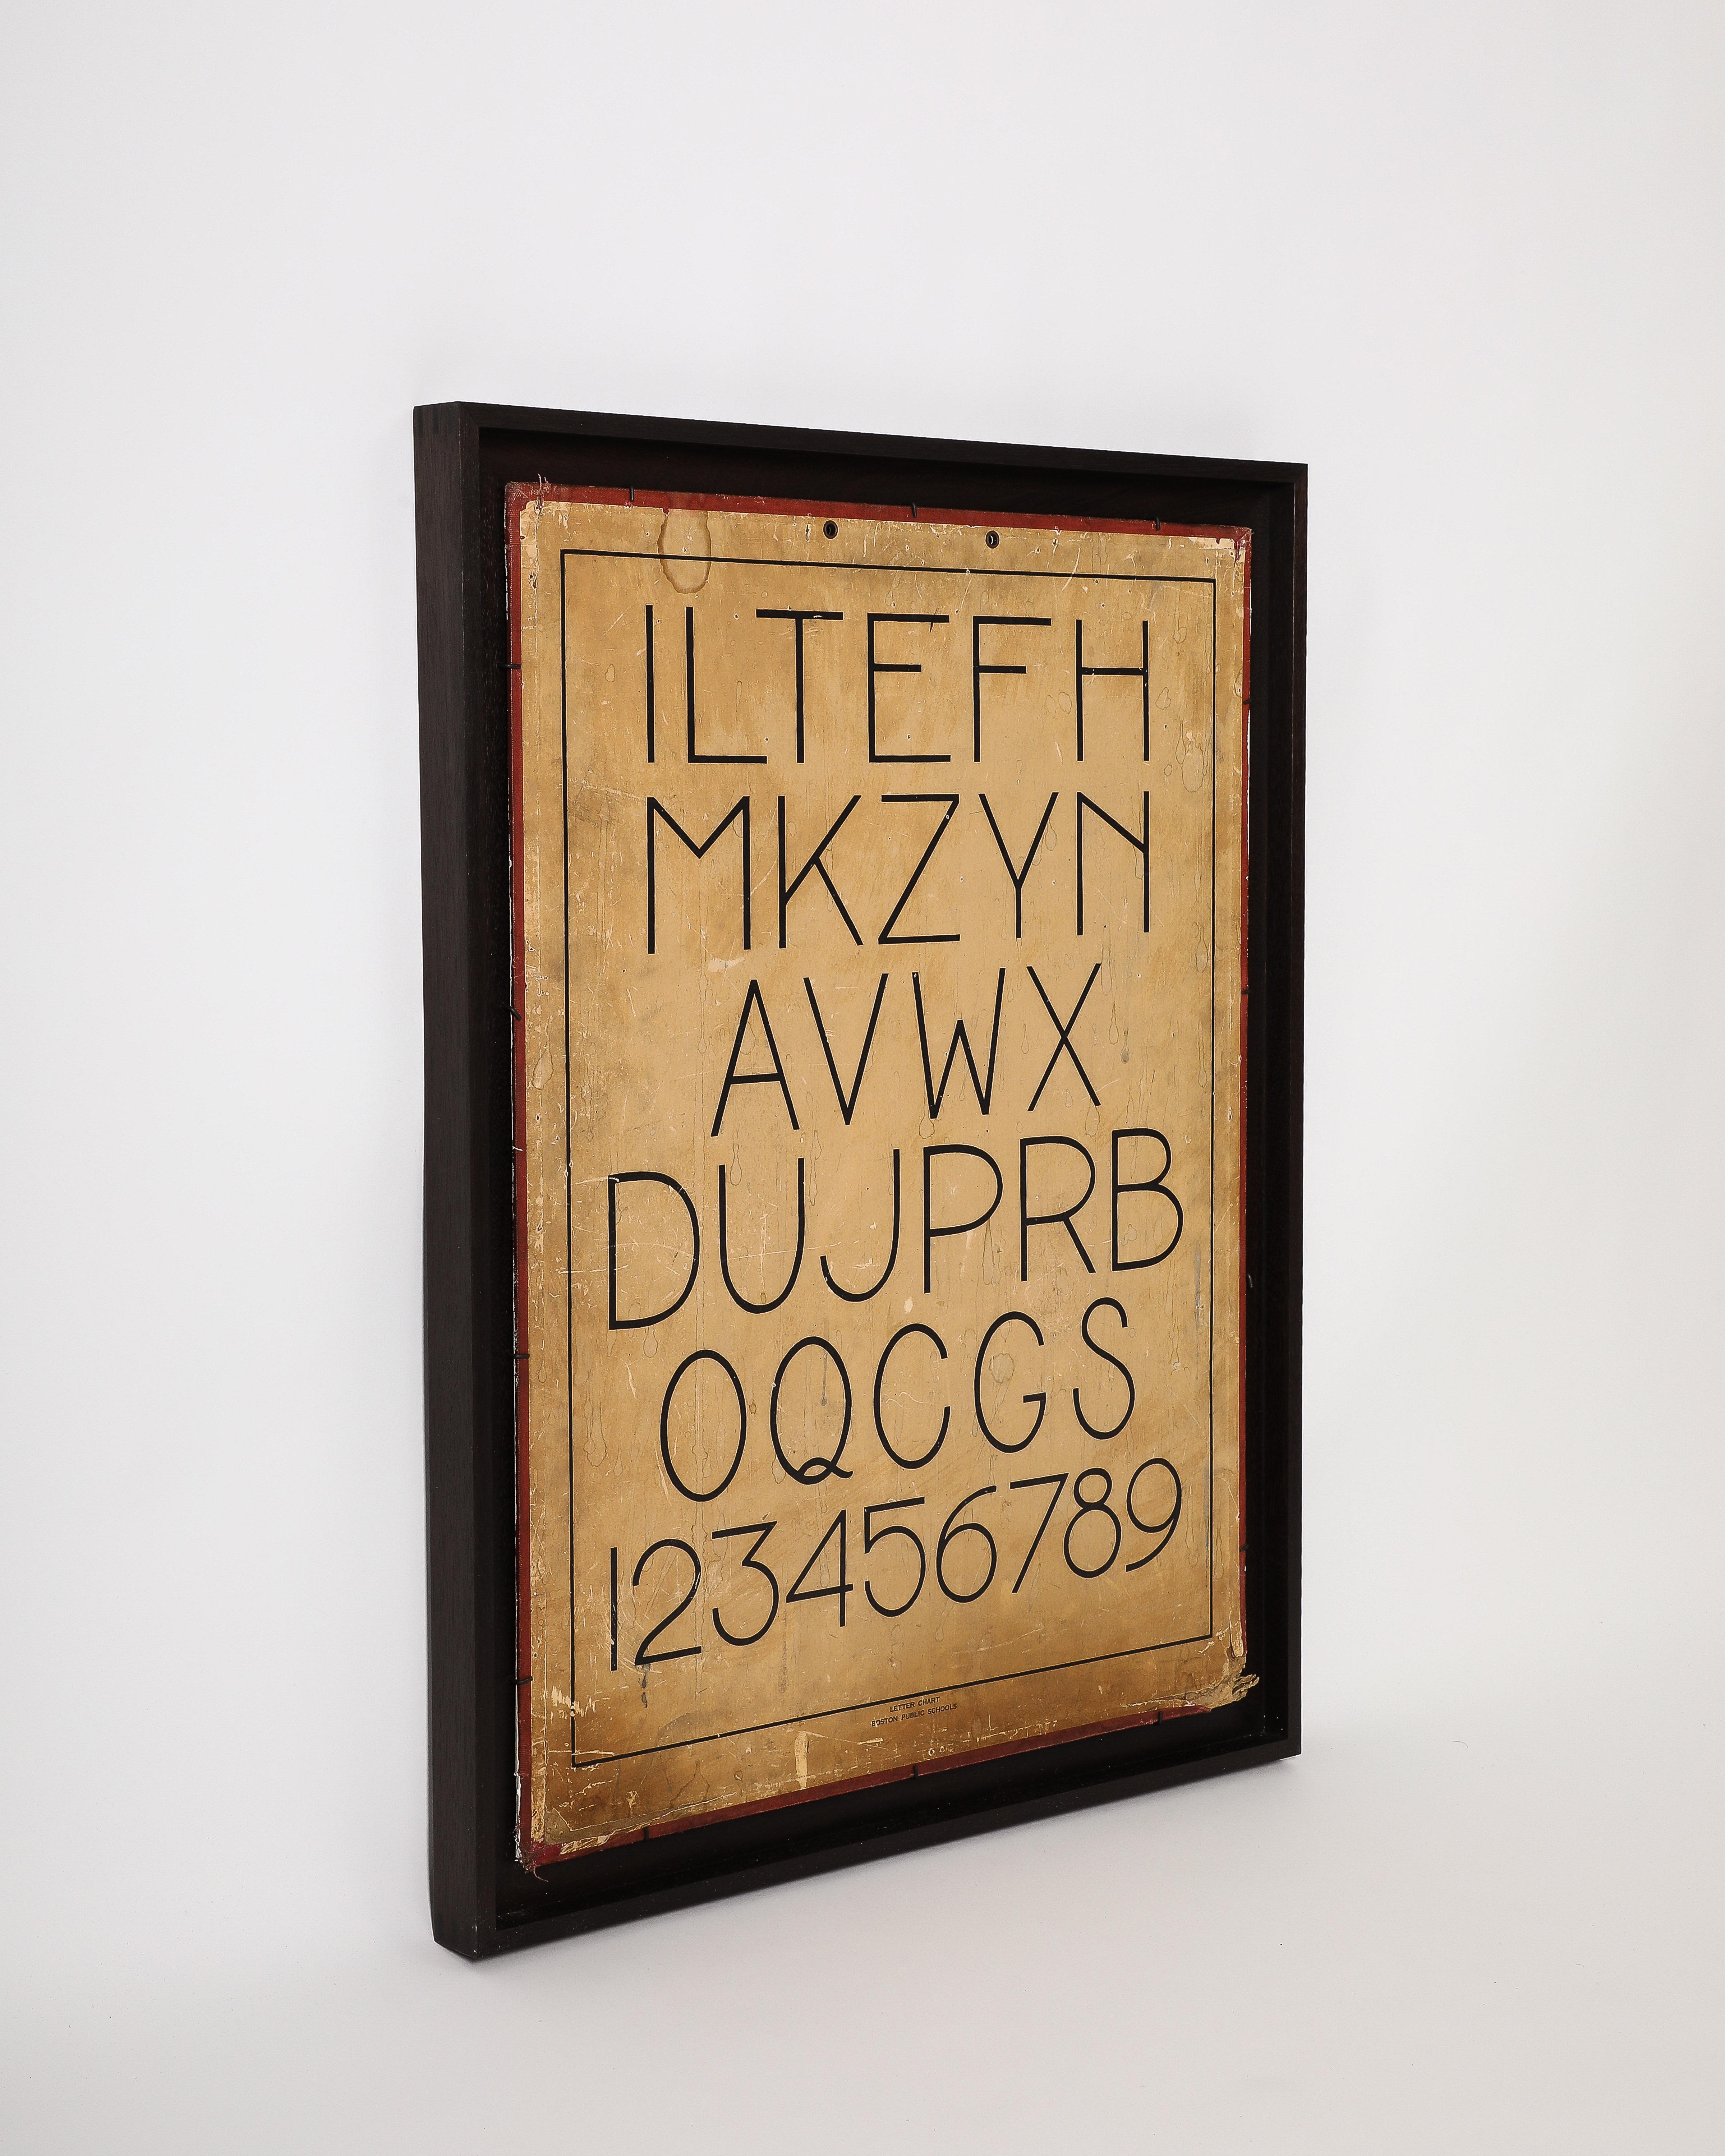 ILTEFH
MKZYN
AVWX
DUJPRB
OQCGS
123456789
LETTER CHART
BOSTON PUBLIC SCHOOLS